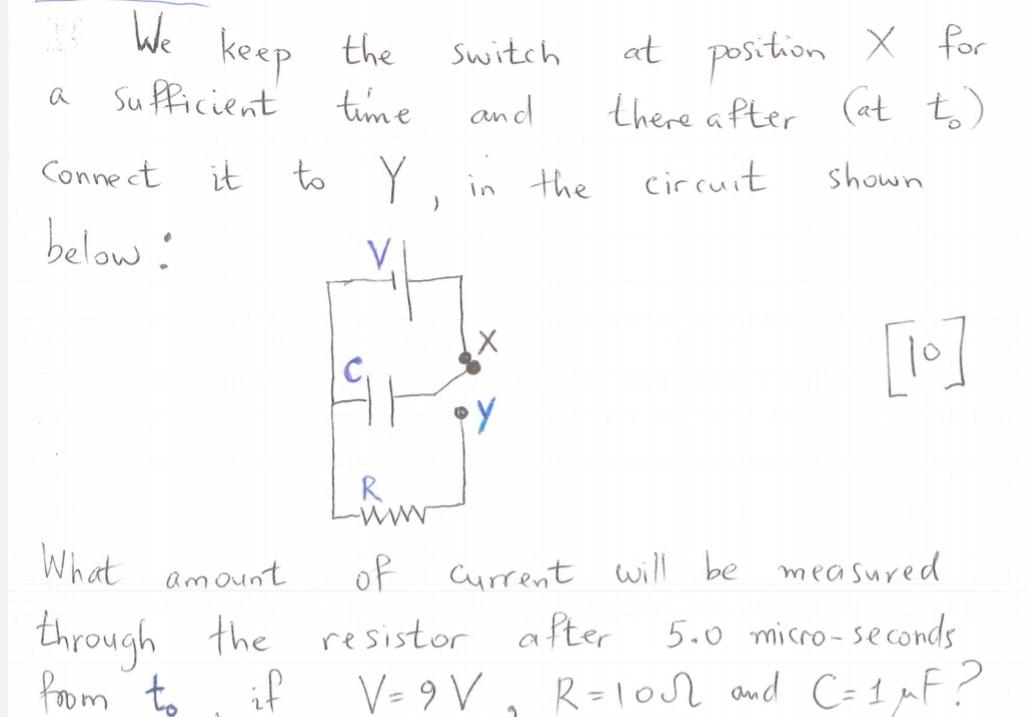 We keep the switch at position X for
a sufficient time and thereafter (at t₀)
Connect it to Y, in the circuit shown
below:
V
X
[10]
C
Y
R
What amount of current will be measured
through the resistor after 5.0 micro-seconds
from t₀, if V=9V, R=10Ω and C=1μF?